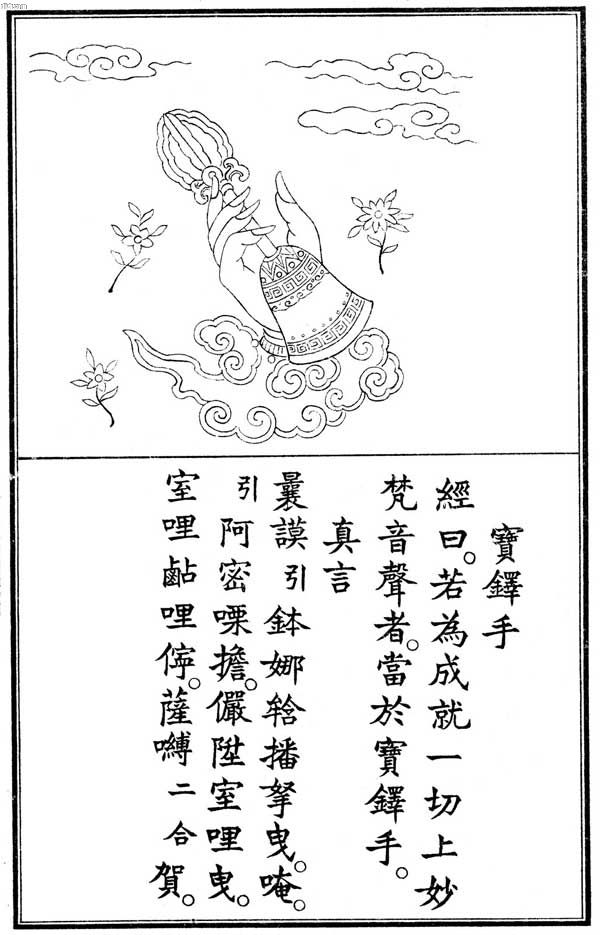 寶鐸手
經曰。若為成就一切上妙
梵音聲者。當於寶鐸手。
真言
曩謨引鉢娜𤚥播拏曳。唵。
引阿密㗚擔。儼陞室哩曳。
室哩𪉜哩儜。薩嚩二合賀。